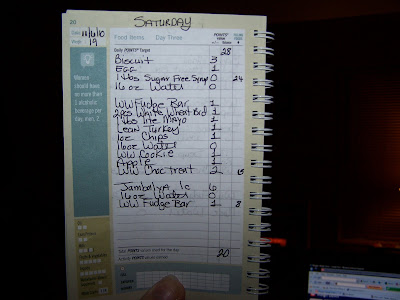 SATURDAY
20
Date 11/6/10
Food Items Day Three
Weigh 19
Daily POINTS Target 28
Biscuit 3
EGG 1
1 tbs Sugar Free Syrup 0 24
16 oz Water 0
Women should have no more than 1 alcoholic beverage per day; men, 2
WW Fudge Bar 1
2 pcs White Wheat Brd 1
1 tbs lite Mayo 1
Lean Turkey 1
1oz Chips 1
16oz Water 0
WW Cookie 1
Apple 1
WW Choc treat 2
Jambalya 1c 6
16 oz Water 0
WW Fudge Bar 1 8
20